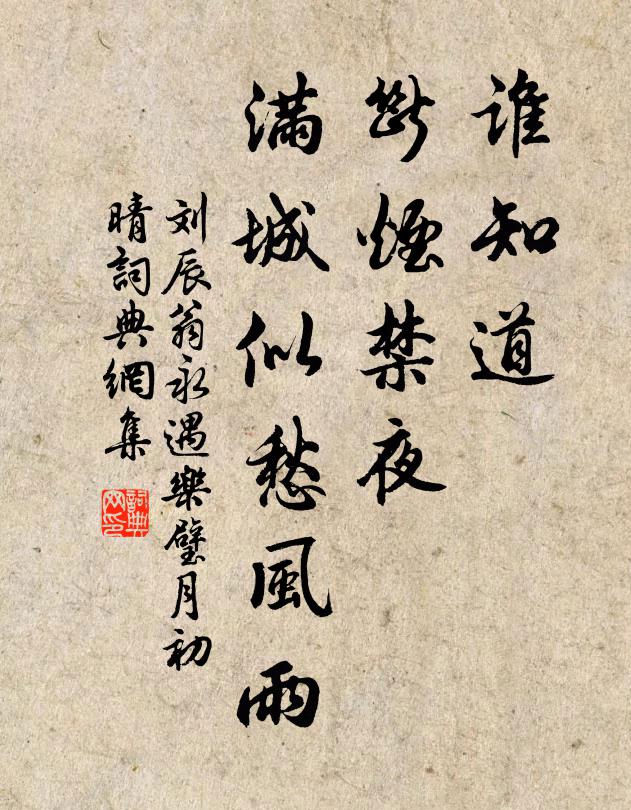 誰知道
斷煙禁夜
滿城似愁風雨
刘辰翁永遇樂璧月初
晴詞典網集
詞典
网印